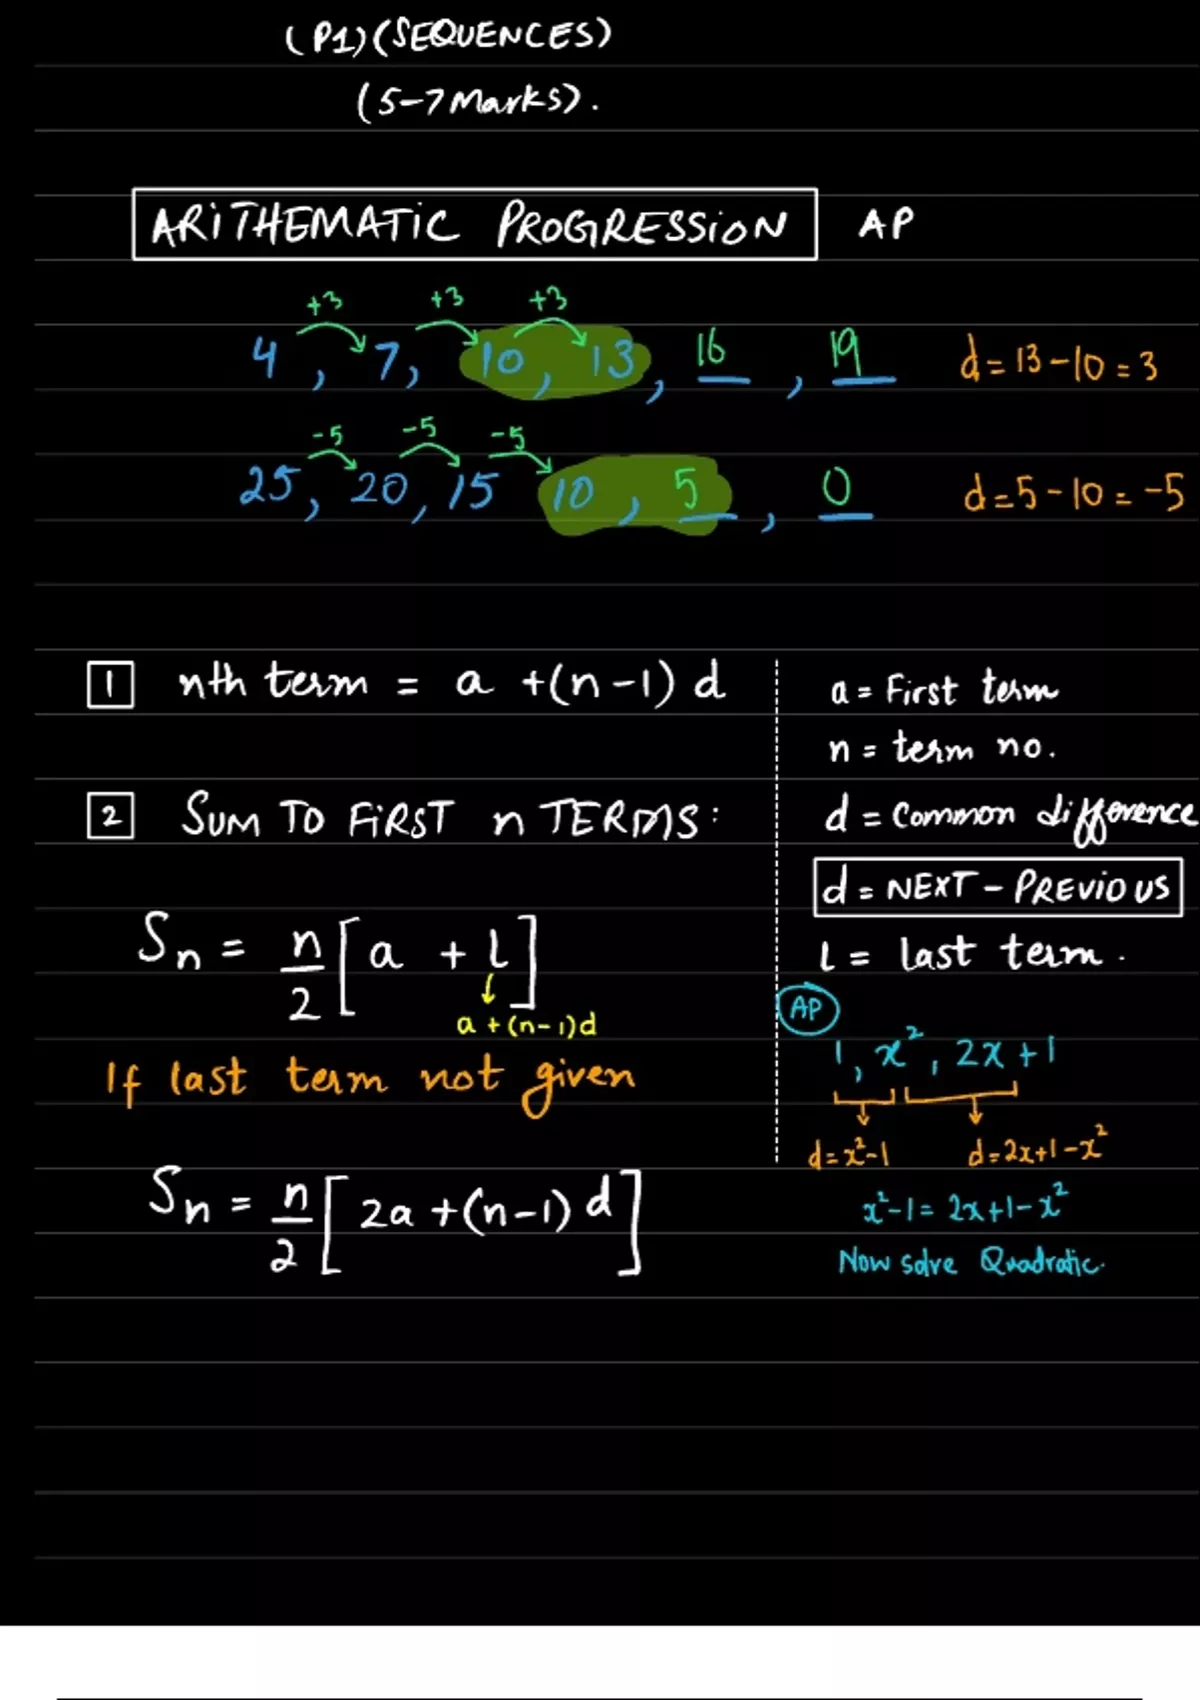 (P1)(SEQUENCES)
(5-7 Marks).
ARITHEMATIC PROGRESSION AP
+3 +3 +3
4, 7, 10, 13, 16, 19 d = 13 - 10 = 3
-5 -5 -5
25, 20, 15 10, 5, 0 d = 5 - 10 = -5
1 nth term = a + (n-1) d
2 SUM TO FIRST n TERMS:
Sn = n/2 [a + l]
a + (n-1)d
If last term not given
Sn = n/2 [2a + (n-1) d]
a = First term
n = term no.
d = Common difference
d = NEXT - PREVIOUS
l = last term.
AP
1, x², 2x+1
d = x²-1 d = 2x+1-x²
x²-1 = 2x+1-x²
Now solve Quadratic.